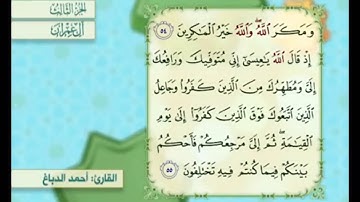 الجزء الثالث
آل عمران
وَمَكَرَ ٱللَّهُ ۖ وَٱللَّهُ خَيْرُ ٱلْمَـٰكِرِينَ ٥٤
إِذْ قَالَ ٱللَّهُ يَـٰعِيسَىٰٓ إِنِّى مُتَوَفِّيكَ وَرَافِعُكَ
إِلَىَّ وَمُطَهِّرُكَ مِنَ ٱلَّذِينَ كَفَرُوا۟ وَجَاعِلُ
ٱلَّذِينَ ٱتَّبَعُوكَ فَوْقَ ٱلَّذِينَ كَفَرُوٓا۟ إِلَىٰ يَوْمِ
ٱلْقِيَـٰمَةِ ۖ ثُمَّ إِلَىَّ مَرْجِعُكُمْ فَأَحْكُمُ
بَيْنَكُمْ فِيمَا كُنتُمْ فِيهِ تَخْتَلِفُونَ ٥٥
القارئ: أحمد الدباغ